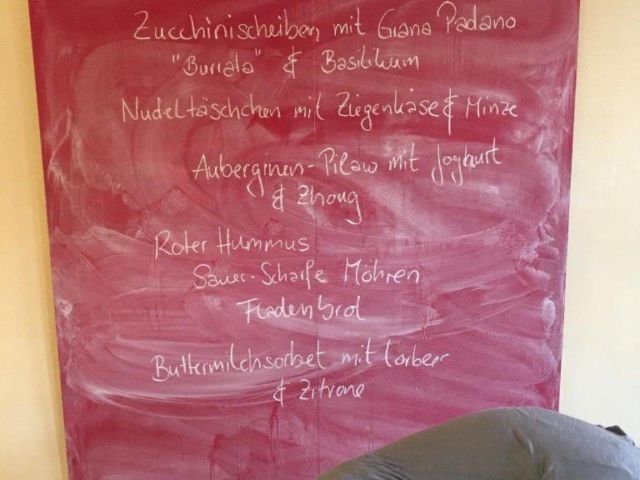 Zucchinischeiben mit Grana Padano
"Burrata" & Basilikum
Nudeltäschchen mit Ziegenkäse & Minze
Auberginen-Pilaw mit Joghurt
& Zhoug
Roter Hummus
Sauer-Scharfe Möhren
Fladenbrot
Buttermilchsorbet mit Lorbeer
& Zitrone